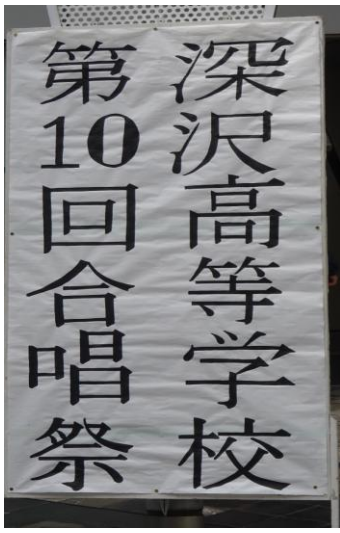 深沢高等学校
第10回合唱祭